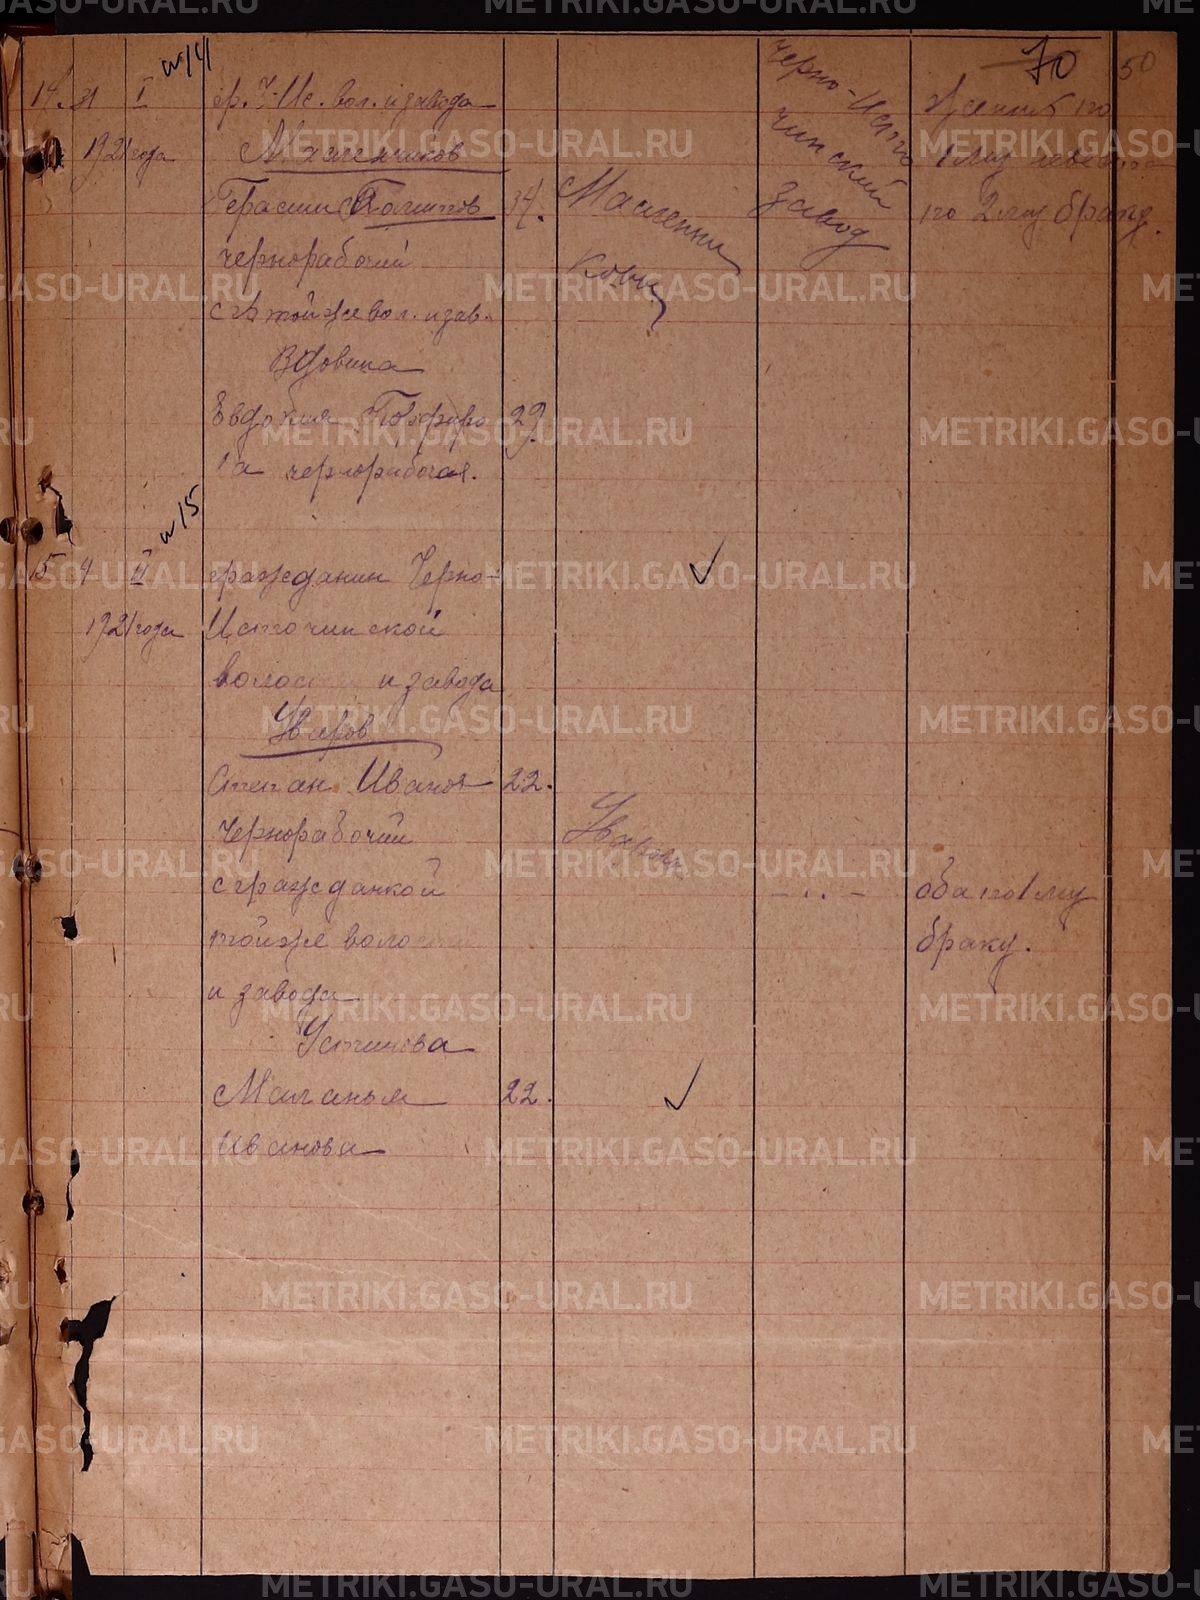 70 50
№ 14
14. 31 I гр. Ч-Ис. вол. и завода
1921 года
Герасим 34.
чернорабочий
с гр. той же вол. и зав.
Вдовина
Евдокия 29.
чернорабочая.
Черно-Источинский завод
жених по
1му
по 2му браку.
№ 15
15 4 II гражданин Черно-
1921 года Источинской
волости и завода
Уваров
Степан Иванов 22.
Чернорабочий
с гражданкой
той же волости
и завода
Устинова
Маланья 22.
Иванова
Уваровы
- .. -
оба по 1му
браку.
METRIKI.GASO-URAL.RU